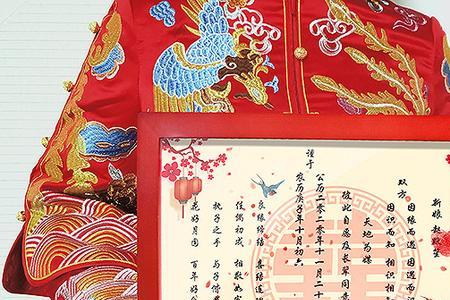 新娘 赵
双方
因缘而遇 因遇而
因识而知 相识相
天地为媒
彼此自愿及长辈同
谨于
公历二零二零年十一月二十
农历庚子年十月初六
良缘缔结 喜结连
佳偶初成 相敬如
执子之手 与子偕
花好月圆 百年好